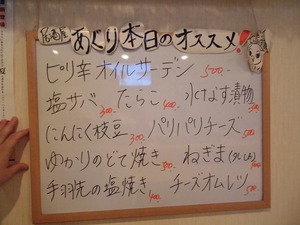 居酒屋 めぐり本日のオススメ!
ピリ辛オイルサーデン 500-
塩サバ 300- たらこ 400- 水なす漬物 300-
にんにく枝豆 300- パリパリチーズ 500-
ゆかりのどて焼き ねぎま(タレ,塩)
手羽先の塩焼き 400- チーズオムレツ 500-